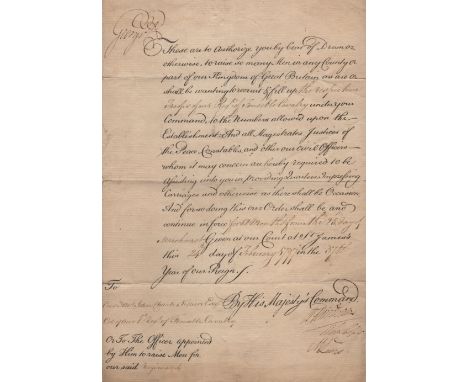 George R
These are to Authorize you by beat of Drum or
otherwise, to raise so many Men in any County or
part of our Kingdom of Great Britain as are or
shall be wanting to recruit & fill up the respective
Troops of our Regt of Cavalry under your
Command, to the Numbers allowed upon the
Establishment. And all Magistrates Justices of
the Peace Constables, and other our civil Officers
whom it may concern are hereby required to be
assisting unto you in Providing Quarters, Impressing
Carriages and otherwise as there shall be Occasion
And for so doing this our Order shall be and
continue in force
Given at our Court at St James's
this 24 day of February in the
Year of our Reign
To
By His Majesty's Command
Or To The Officer appointed
by Him to raise Men for
our said Regiment